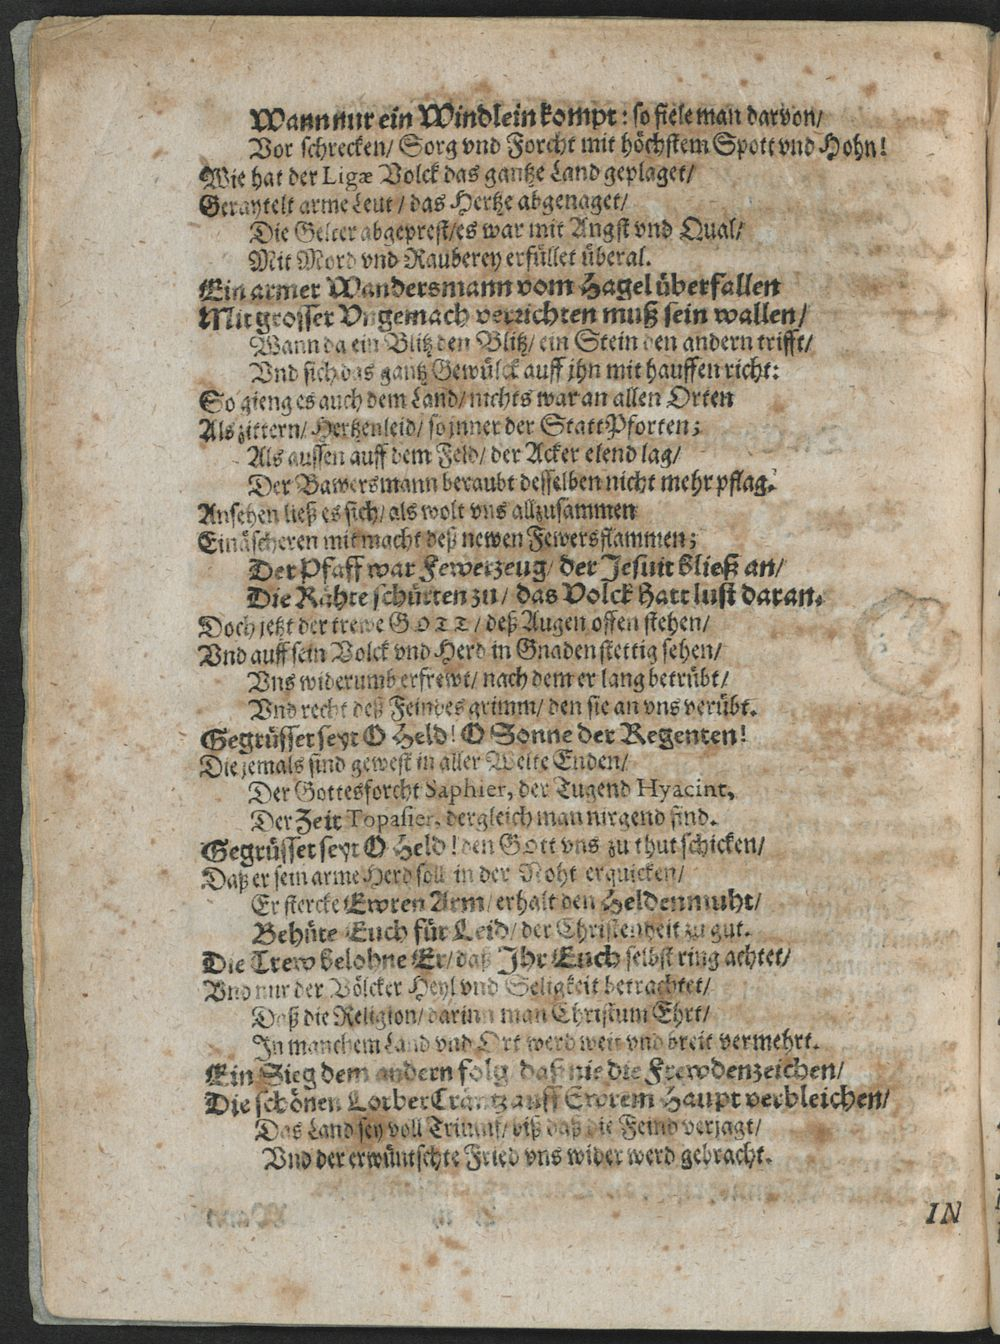 Wann nur ein Windlein kompt: so fiele man darvon/
Vor schrecken/ Sorg vnd Forcht mit höchstem Spott vnd Hohn!
Wie hat der Ligæ Volck das gantze Land geplaget/
Geraytelt arme Leut / das Hertze abgenaget/
Die Gelter abgeprest/es war mit Angst vnd Qual/
Mit Mord vnd Rauberey erfüllet überal.
Ein armer Wandersmann vom Hagel überfallen
Mit grosser Vngemach verrichten muß sein wallen/
Wann da ein Blitz den Blitz/ ein Stein den andern trifft/
Vnd sich das gantz Gewülck auff jhn mit hauffen richt:
So gieng es auch dem Land/ nichts war an allen Orten
Als zittern/ Hertzenleid/ so jnner der Statt Pforten;
Als aussen auff dem Feld/ der Acker elend lag/
Der Bawersmann beraubt desselben nicht mehr pflag.
Ansehen ließ es sich/ als wolt vns allzusammen
Einäscheren mit macht deß newen Fewersflammen;
Der Pfaff war Fewerzeug/ der Jesuit bließ an/
Die Rähte schürten zu/ das Volck hatt lust daran.
Doch jetzt der trewe GOTT/ deß Augen offen stehen/
Vnd auff sein Volck vnd Herd in Gnaden stettig sehen/
Vns widerumb erfrewt/ nach dem er lang betrübt/
Vnd recht deß Feindes grimm/ den sie an vns verübt.
Gegrüsset seyt O Held! O Sonne der Regenten!
Die jemals sind gewest in aller Welte Enden/
Der Gottesforcht Saphier, der Tugend Hyacint,
Der Zeit Topasier, dergleich man nirgend find.
Gegrüsset seyt O Held! den Gott vns zu thut schicken/
Daß er sein arme Herd soll in der Noht erquicken/
Er stercke Ewren Arm/ erhalt den Heldenmuht/
Behüte Euch für Leid/ der Christenheit zu gut.
Die Trew belohne Er/ daß Jhr Euch selbst ring achtet/
Vnd nur der Völcker Heyl vnd Seligkeit betrachtet/
Daß die Religion/ darinn man Christum Ehrt/
In manchem Land vnd Ort werd weit vnd breit vermehrt.
Ein Sieg dem andern folg daß nie die Frewdenzeichen/
Die schönen Lorber Cräntz auff Ewrem Haupt verbleichen/
Das Land sey voll Triumf/ biß daß die Feind verjagt/
Vnd der erwüntschte Fried vns wider werd gebracht.
IN